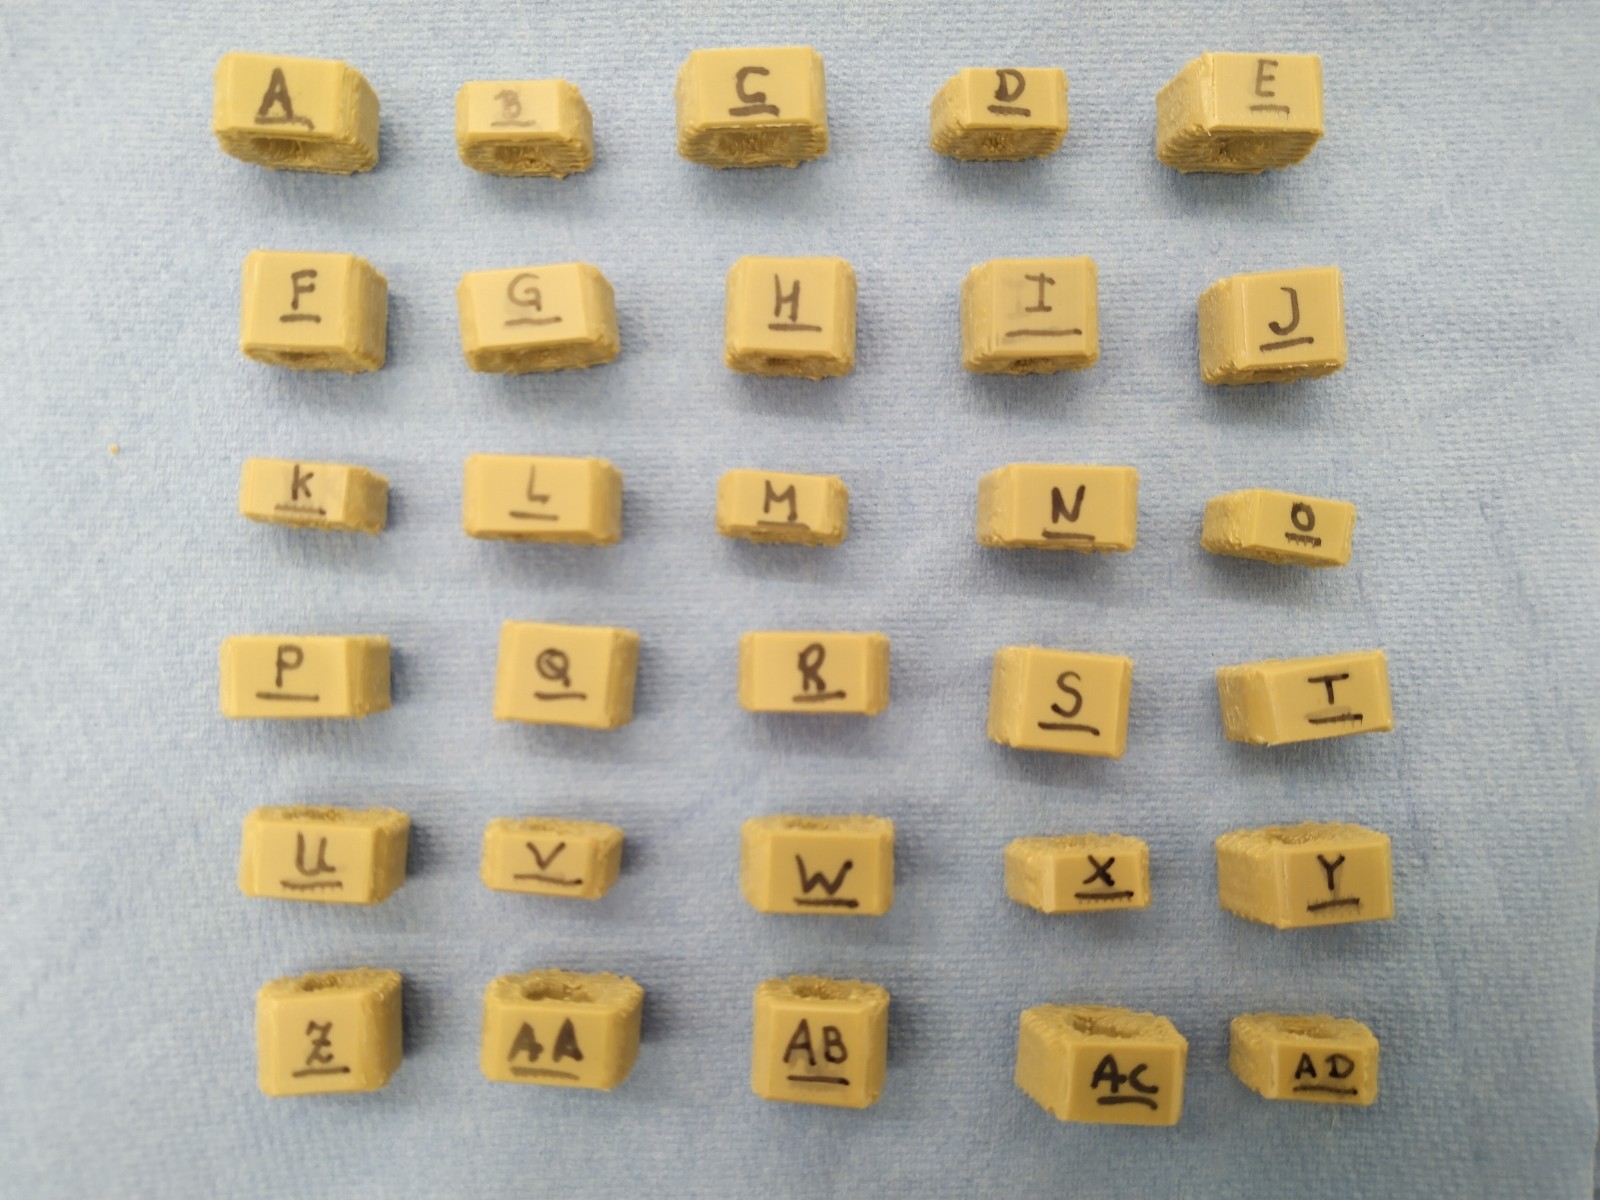 A B C D E
F G H I J
K L M N O
P Q R S T
U V W X Y
Z AA AB AC AD